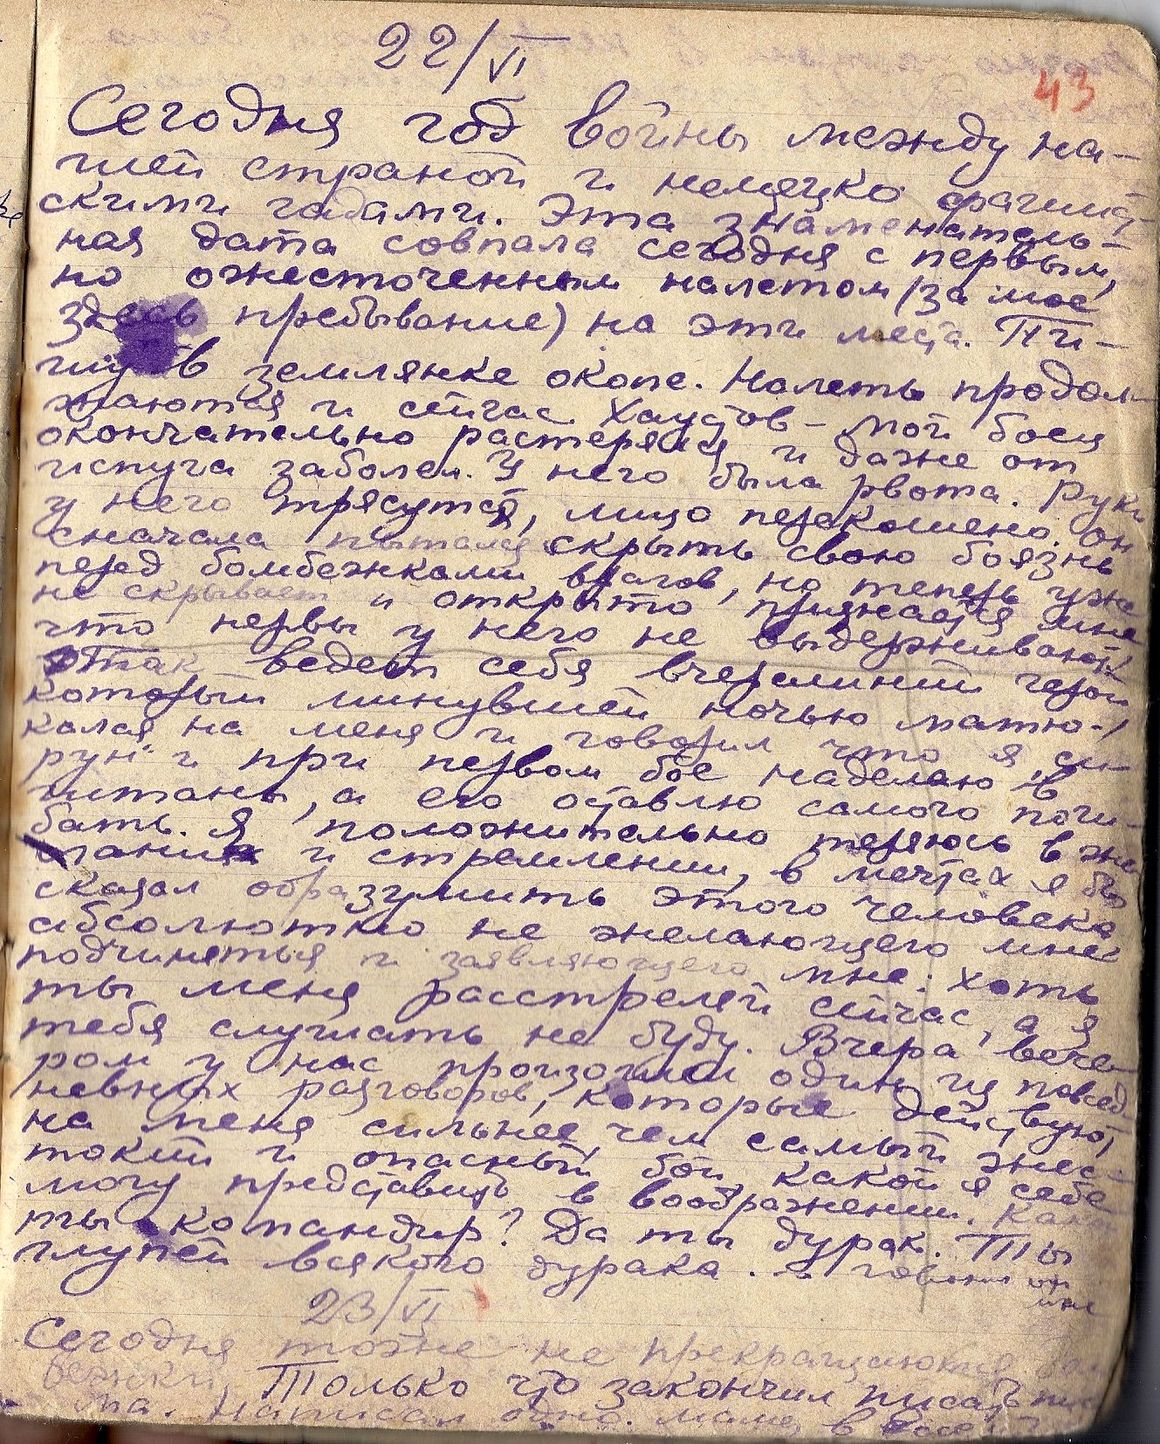 22/VI
43
Сегодня год войны между на-
шей страной и немецко фашист-
скими гадами. Эта знаменатель-
ная дата совпала сегодня с первым,
но ожесточенным налетом (за мое
здесь пребывание) на эти места. Пи-
шу в землянке окопе. Налеты продол-
жаются и сейчас. Хаустов – мой боец
окончательно растерялся и даже от
испуга заболел. У него была рвота. Руки
у него трясутся, лицо перекошено. Он
сначала пытался скрыть свою боязнь
перед бомбежками врагов, но теперь уже
не скрывает и открыто признается мне
что нервы у него не выдерживают.
Так ведет себя вчерашний герой
который минувшей ночью матю-
кался на меня и говорил что я "си-
рун" и при первом бое наделаю в
штаны, а его оставлю самого поги-
бать. Я положительно теряюсь в же-
лании и стремлении, в мечтах я бы
сказал образумить этого человека
абсолютно не желающего мне
подчиняться и заявляющего мне: хоть
ты меня расстреляй сейчас, а я
тебя слушать не буду. Вчера вече-
ром у нас произошел один из повсед-
невных разговоров, которые действуют
на меня сильнее, чем самый жес-
токий и опасный бой, какой я себе
могу представить в воображении. Какой
ты командир? Да ты дурак. Ты
глупей всякого дурака. – говорил он
мне
23/VI
Сегодня тоже не прекращаются бом-
бежки. Только что закончил писать пись-
ма. Написал одно маме, в